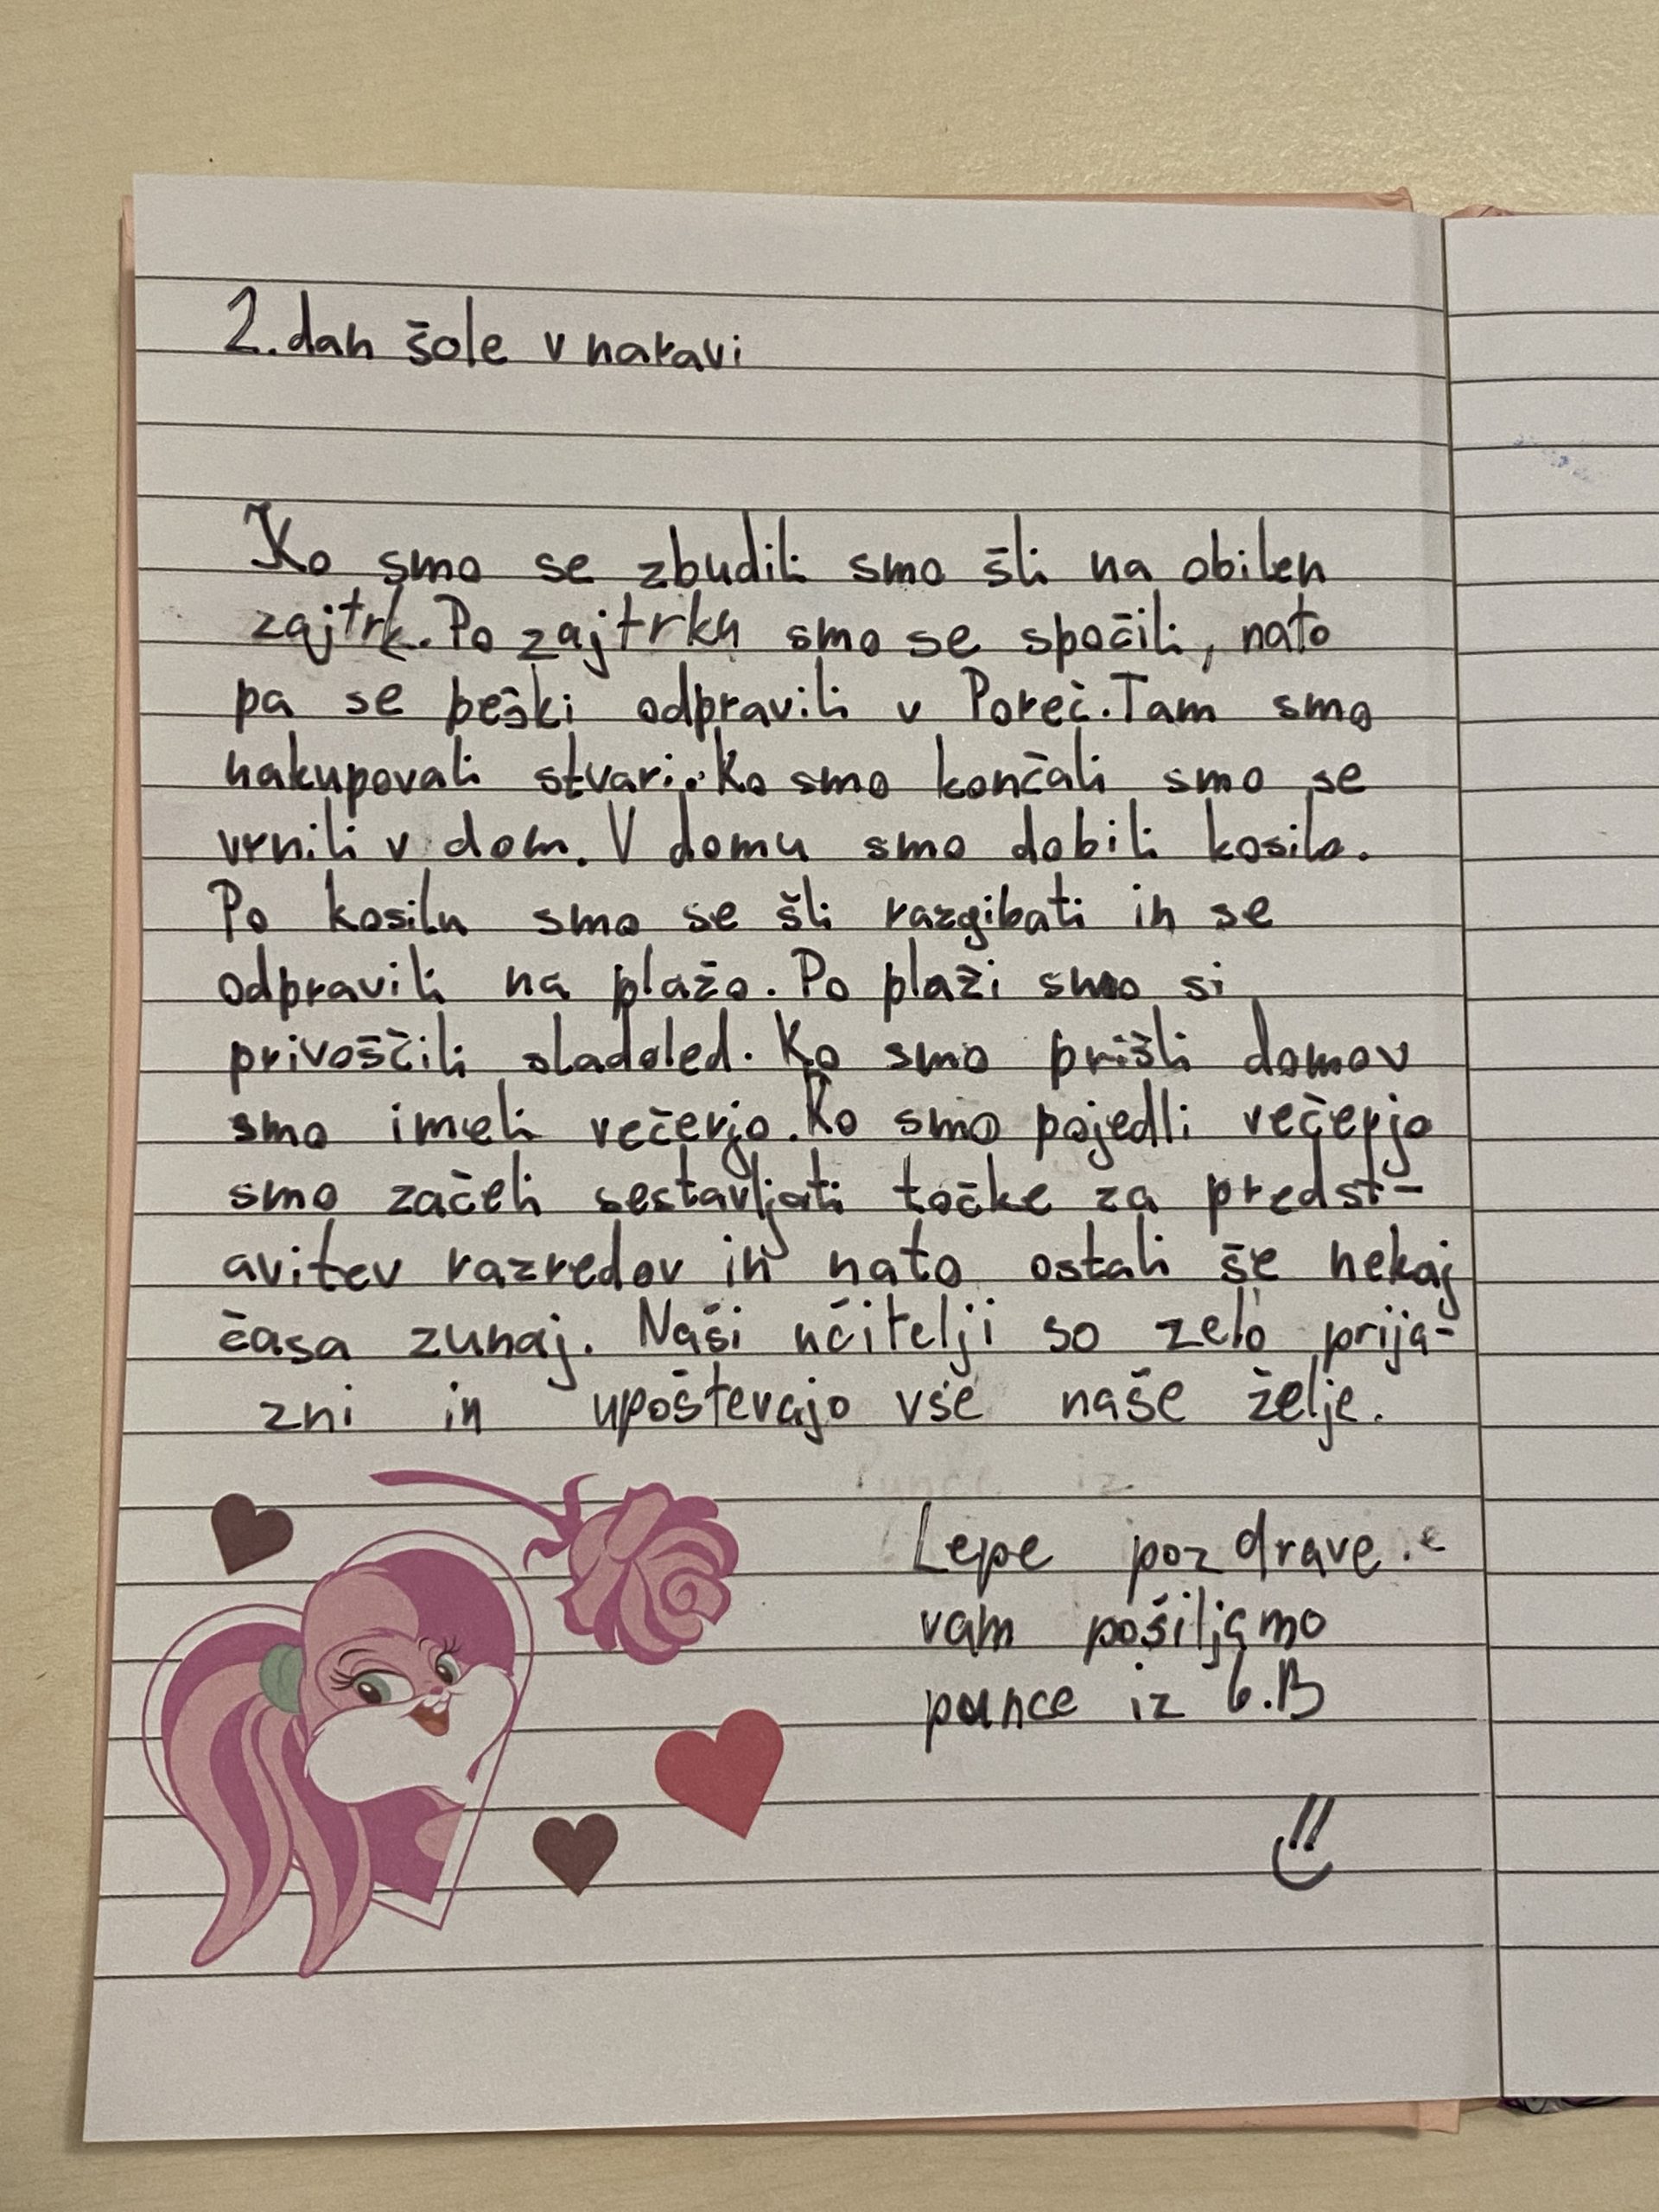 2. dan šole v naravi
Ko smo se zbudili smo šli na obilen
zajtrk. Po zajtrku smo se spočili, nato
pa se peški odpravili v Poreč. Tam smo
nakupovali stvari. Ko smo končali smo se
vrnili v dom. V domu smo dobili kosilo.
Po kosilu smo se šli razgibati in se
odpravili na plažo. Po plaži smo si
privoščili sladoled. Ko smo prišli domov
smo imeli večerjo. Ko smo pojedli večerjo
smo začeli sestavljati točke za predst-
avitev razredov in nato ostali še nekaj
časa zunaj. Naši učitelji so zelo prija-
zni in upoštevajo vse naše želje.
Lepe pozdrave
vam pošiljamo
punce iz 6.B